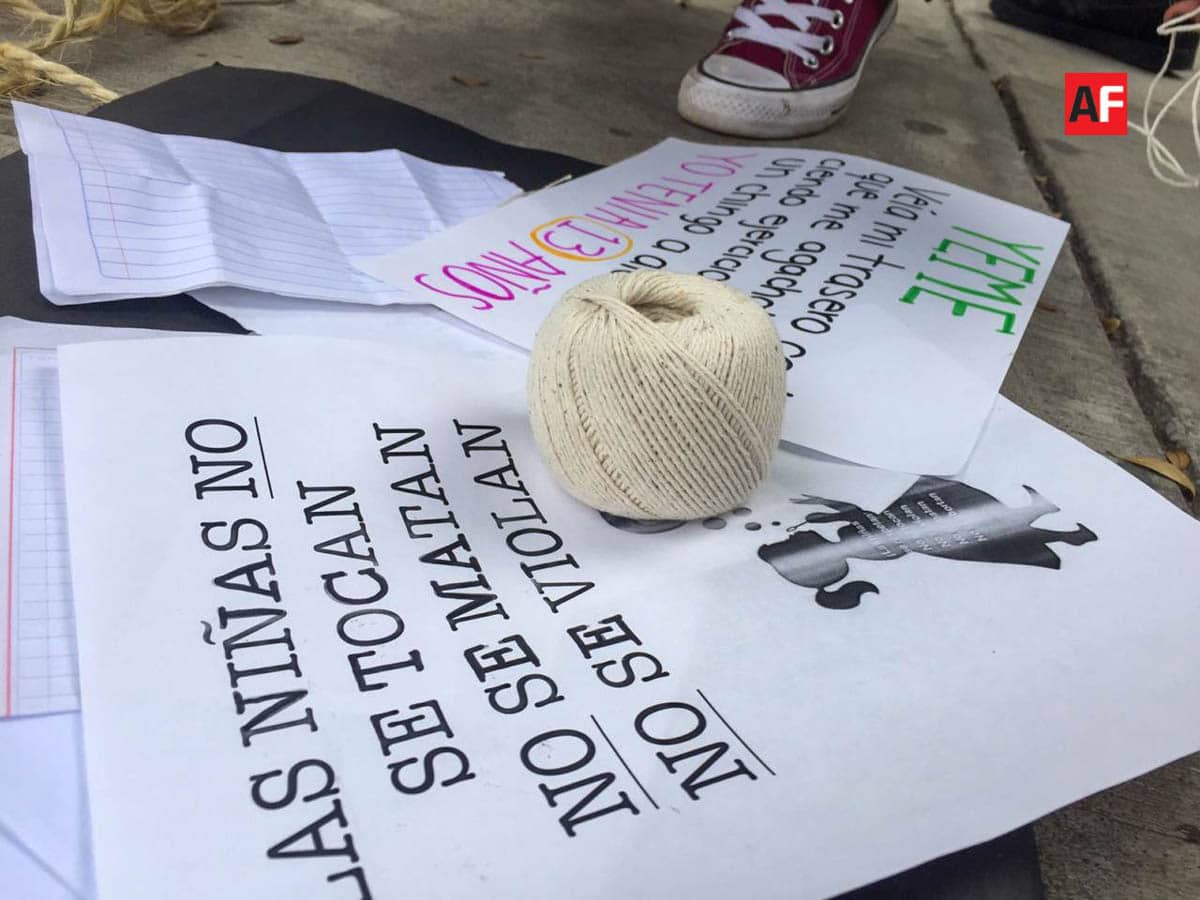 AF
YEME
Véia mi trasero ca
que me agacha
ciendo ejercicio
un chingo a
YO TENIA 13
AÑOS
LAS NIÑAS NO
SE TOCAN
NO SE MATAN
NO SE VIOLAN